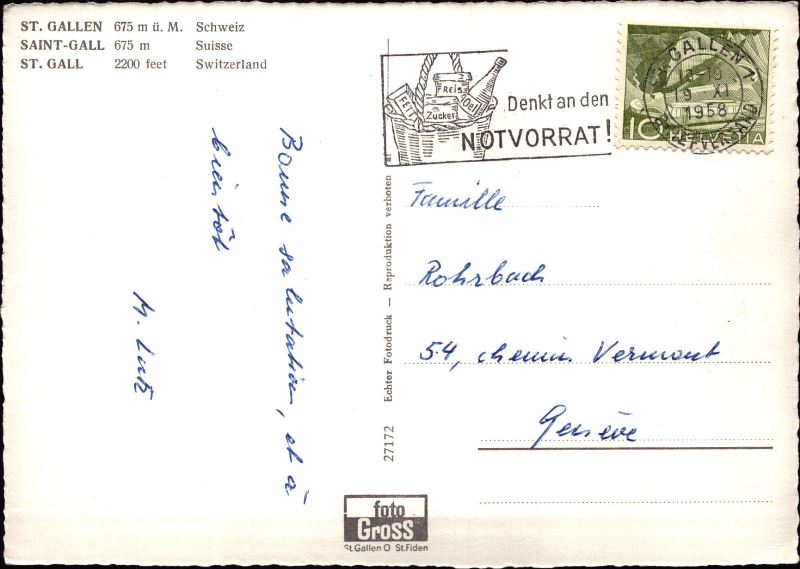 ST. GALLEN 675 m ü. M. Schweiz
SAINT-GALL 675 m Suisse
ST. GALL 2200 feet Switzerland
FETT
Reis
Zucker
Oel
Denkt an den
NOTVORRAT!
GALLEN 1
XI
1958
BRIEFVERSAND
10 HELVETIA
Bonne salutation, et à
bientôt
Famille
Rohrbach
54, chemin Vermont
Genève
Echter Fotodruck — Reproduktion verboten
27172
foto
Gross
St. Gallen O St. Fiden